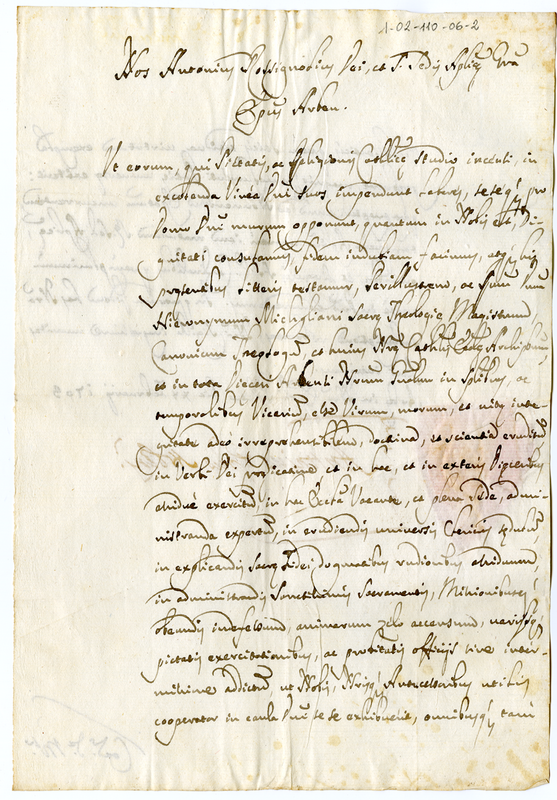 1-02-110-06-2
Nos Antonius Rossignolius Dei, et S. Sedis Aplicę Gra
Epus Arben.
Ut eorum, qui Pietatis, ac Religionis Catholicę studio incensi, in
excolenda Vinea Dni suos impendunt labores, seseq pro
Domo Dni murum opponunt, quantum in Nobis est Di-
gnitati consulamus, fidem indubiam facimus, atq his
pręsentibus litteris testamur, Perillustrem, ac Rdum Dnum
Hieronymum Michgliani Sacrę Theologię Magistrum,
Canonicum Theologum, et huius Nrę Cathlis Eccłę Archipbrum
et in tota Diecesi Arbensi Nrum Gnlem in Splibus, ac
temporalibus Vicarium, esse Virum, morum, et vitę inte-
gritate adeo irreprehensibilem, doctrina, et scientia eruditum
in Verbi Dei prędicatione et in hac, et in exteris Diocesibus
assidue exercitum, in hac Eccła Vacante, et plena Sede, admi-
nistranda expertum, in erudiendis universis Clericis sedulum
in explicandis Sacrę Fidei dogmatibus rudioribus assiduum,
in administrandis Sanctissimis Sacramentis, Missionibusq
obeundis indefessum, animarum zelo accensum, varijsq
pietatis exercitationibus, ac probitatis officijs sine inter-
missione addictum, ut Nobis, Nrisq Antecessoribus utilis
cooperator in causa Dni se se exhibuerit, omnibusq tam